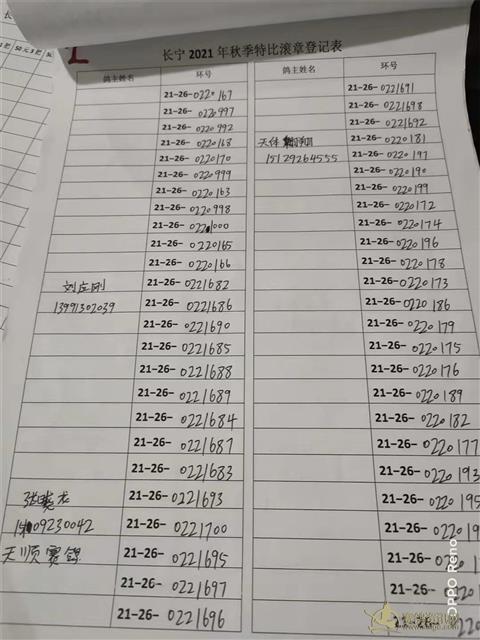 长宁2021年秋季特比滚章登记表
鸽主姓名 环号
21-26-0220167
21-26-0220997
21-26-0220992
21-26-0220168
21-26-0220170
21-26-0220999
21-26-0220163
21-26-0220998
21-26-0221000
21-26-0220165
21-26-0220166
刘庄刚 21-26-0221682
13991302039 21-26-0221686
21-26-0221690
21-26-0221685
21-26-0221688
21-26-0221689
21-26-0221684
21-26-0221687
21-26-0221683
张晓龙 21-26-0221693
09230042 21-26-0221700
天顺赛鸽 21-26-0221695
21-26-0221697
21-26-0221696
鸽主姓名 环号
21-26-0221691
21-26-0221698
21-26-0221692
天佑 翔 21-26-0220181
15129264555 21-26-0220197
21-26-0220190
21-26-0220199
21-26-0220172
21-26-0220174
21-26-0220196
21-26-0220178
21-26-0220173
21-26-0220186
21-26-0220179
21-26-0220175
21-26-0220176
21-26-0220189
21-26-0220182
21-26-0220177
21-26-0220193
21-26-0220195
21-26-022019
21-26-0220
21-26-0220
21-26-0220
OPPO Reno